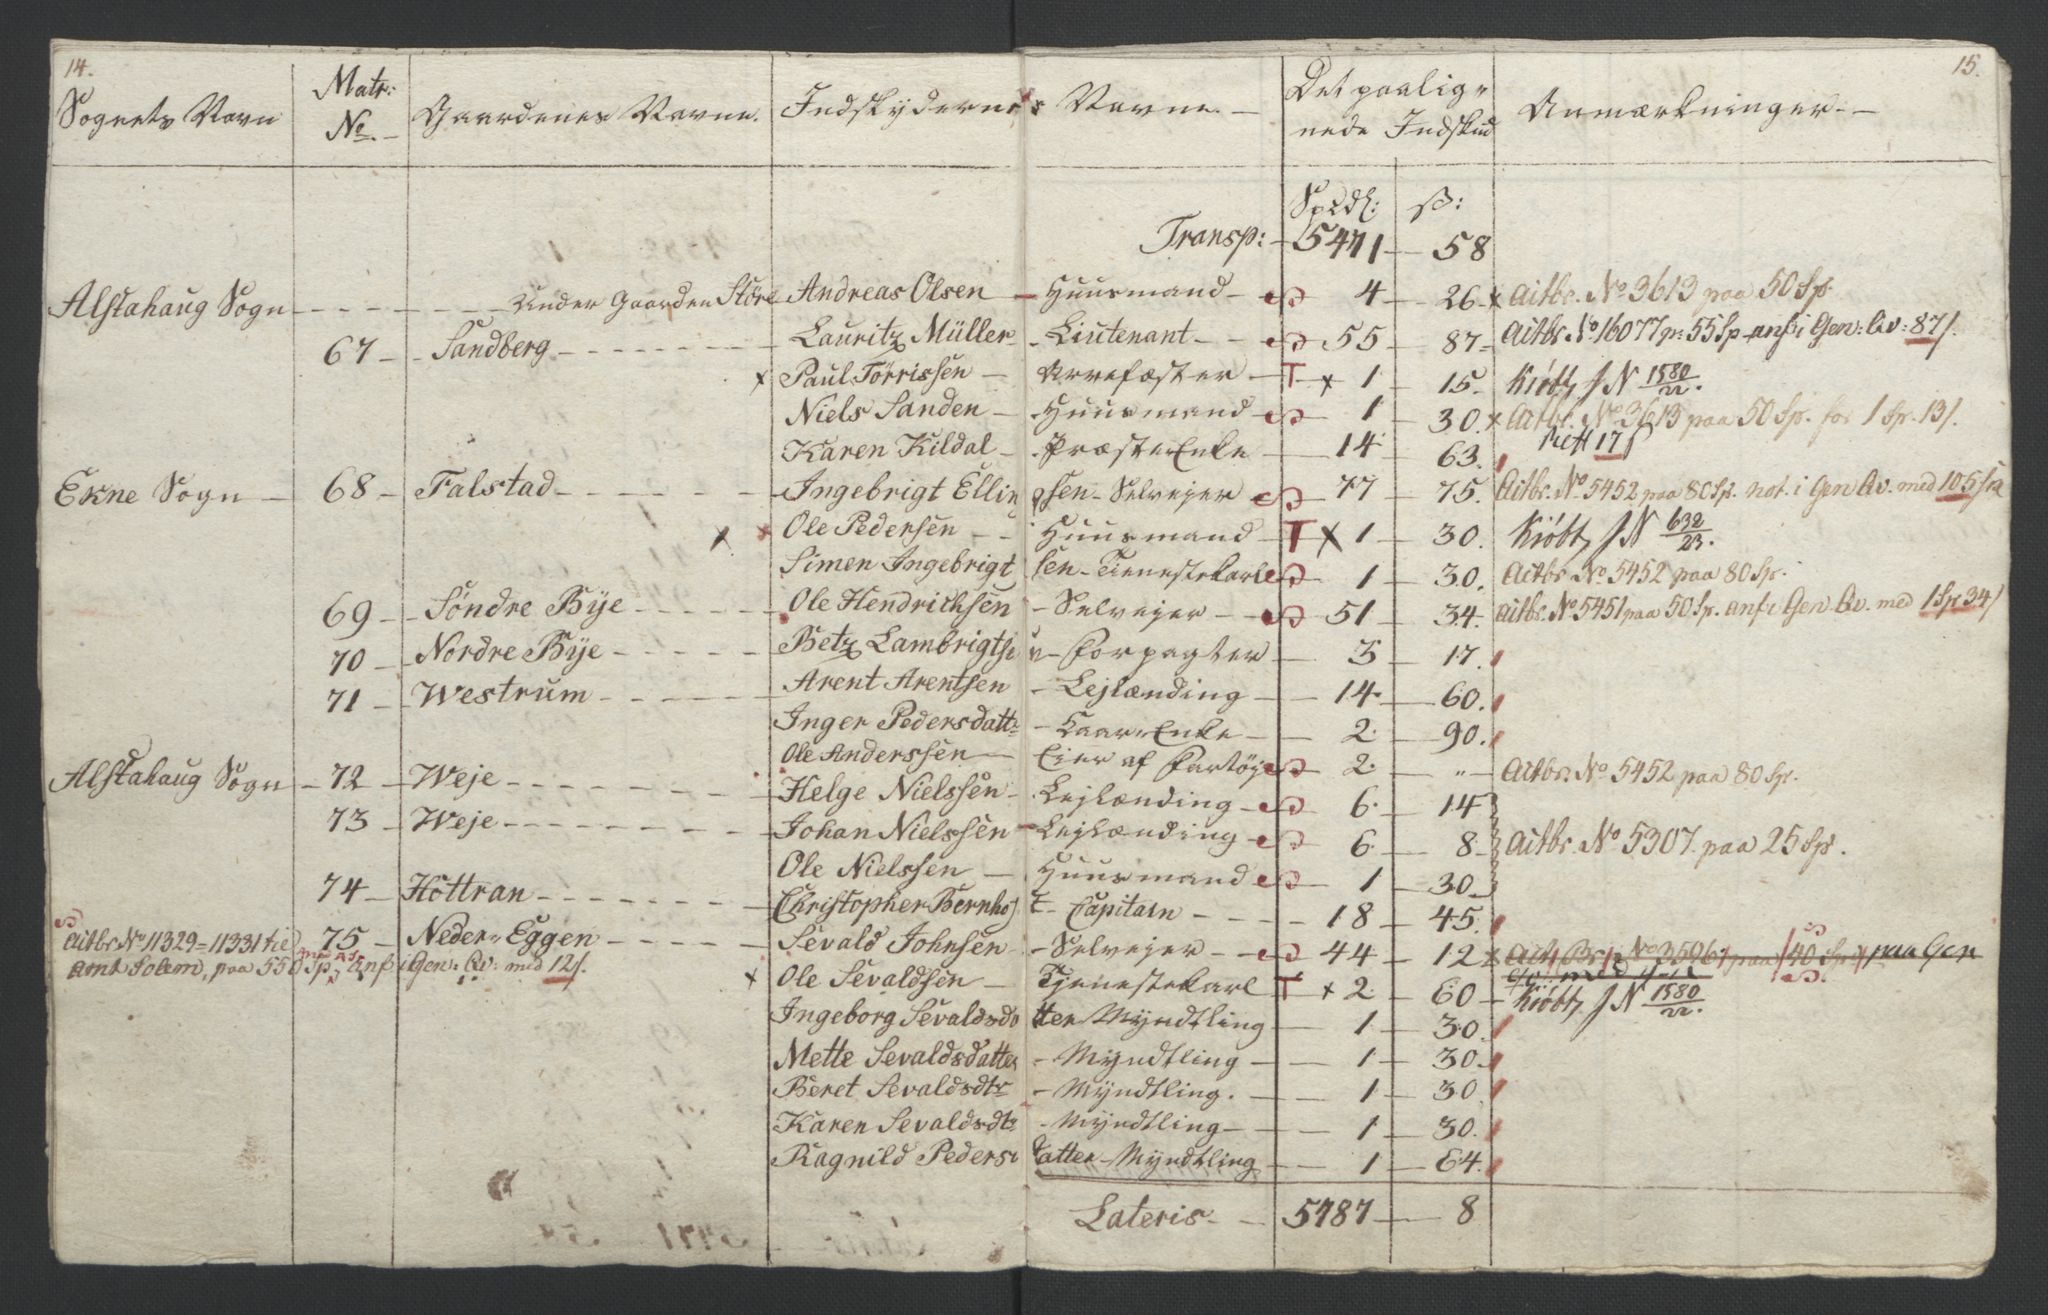 14.
15.
Sognets Navn
Matr: No.
Gaardenes Navne.
Indskydernes Navne.
Det paalig„nede Indskud
Anmærkninger.
Spdl: ß:
Transp: 5471 58
Alstahaug Sogn Under Gaarden Störe Andreas Olsen Huusmand 4 26 x Actbr. No 3613 paa 50 Sp.
67 Sandberg Lauritz Müller Lieutenant 55 87 Actbr. No 16077 pr: 55 Sp anf i Gen: Qv: 87 ß.
x Paul Törrissen Arvefæster T x 1 15. Kiöbt J N 1580/22.
Niels Sanden Huusmand 1 30. x Actbr. No 3613 paa 50 Sp. for 1 Sp. 13 ß.
Rest 17 ß
Karen Kildal Præste Enke 14 63.
Ekne Sogn 68 Falstad Ingebrigt Ellingsen Selvejer 77 75. Actbr. No 5452 paa 80 Sp. not. i Gen Qv. med 105 ß
x x Ole Pedersen Huusmand T x 1 30. Kiöbt J N 632/23.
Simen Ingebrigtsen Tienestekarl 1 30. Actbr. No 5452 paa 80 Sp.
69 Söndre Bÿe Ole Hendrichsen Selvejer 51 34. Actbr. No 5451 paa 50 Sp. anf i Gen Qv. med 1 Sp 34 ß
70 Nordre Bÿe Betz Lambrigtsen Forpagter 3 17.
71 Westrum Arent Arentsen Lejlænding 14 60.
Inger Pedersdattr Kaar Enke 2. 90.
Ole Anderssen Eier af Fartöÿ 2. „ Actbr. No 5452 paa 80 Sp.
Alstahaug Sogn 72 Weje Helge Nielssen Lejlænding 6. 14
73 Weje Johan Nielssen Lejlænding 6. 8 Actbr. No 5307 paa 25 Sp.
Ole Nielssen Huusmand 1 30
74 Hottran Christopher Bernhoft Capitain 18 45.
75 Neder Eggen Sevald Johnsen Selvejer 44 12 x
Actbr No 11329 = 11331 til
Amt Solem, paa 550 Sp, Anf i Gen: Qv: med 12 ß.
x Ole Sevaldsen Tjenestekarl T x 2. 60 Kiöbt J N 1580/22.
Ingeborg Sevaldsdotter Mÿndtling 1 30.
Mette Sevaldsdatter Mÿndtling 1 30.
Beret Sevaldsdtr Mÿndtling. 1 30.
Karen Sevaldsdtr Mÿndtling 1 30.
Ragnild Pedersdatter Mÿndtling 1 64.
Lateris 5787 8